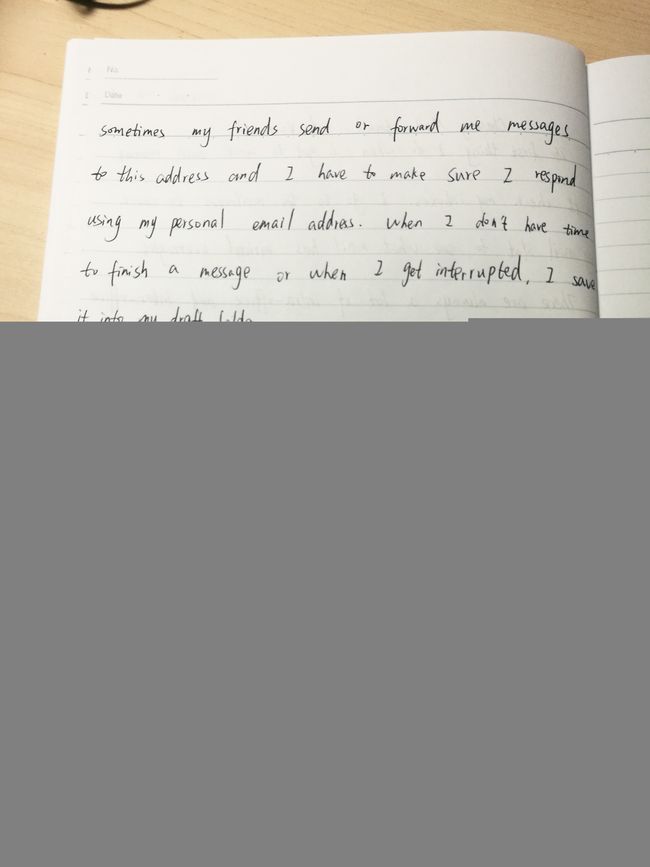 No.
Date
sometimes my friends send or forward me messages
to this address and I have to make sure I respond
using my personal email address. when I don't have time
to finish a message or when I get interrupted, I save
it into my draft